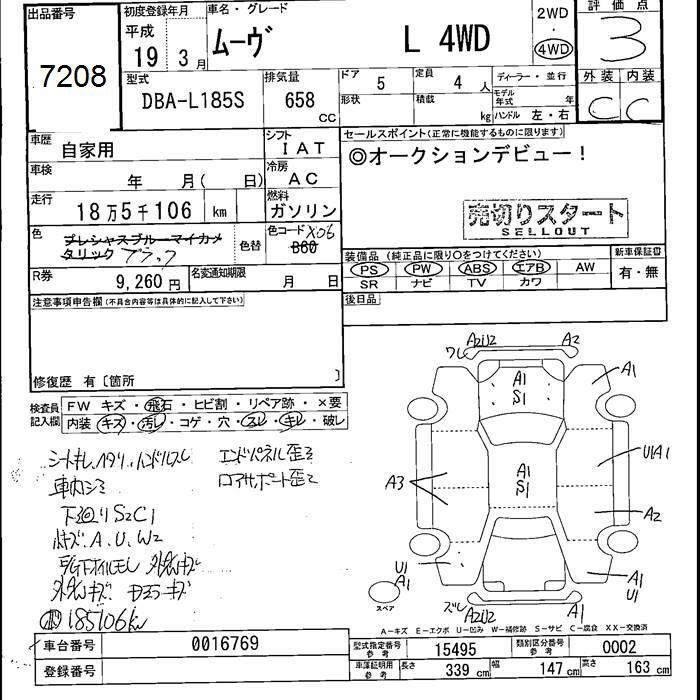 出品番号
7208
初度登録年月
平成
19 3月
車名・グレード
ムーヴ L 4WD
2WD
・
4WD
評価点
3
外装 内装
C C
型式
DBA-L185S
排気量
658 cc
ドア 5
定員 4人
形状
積載 kg
ディーラー・並行
モデル年式 年
ハンドル 左・右
車歴 自家用
シフト IAT
車検 年 月( 日)
冷房 AC
走行 18万5千106 km
燃料 ガソリン
色 プレシャスブルーマイカメタリック ブラック
色替
色コード X06
860
R券 9,260円
名変通知期限 月 日
セールスポイント(正常に機能するものに限ります)
◎オークションデビュー!
売切りスタート
SELLOUT
装備品(純正品に限り○をつけてください)
PS PW ABS エアB AW
SR ナビ TV カワ
新車保証書
有・無
後日品
注意事項申告欄(不具合内容等は具体的に記入して下さい)
修復歴 有〔箇所 〕
検査員記入欄
FW キズ・飛石・ヒビ割・リペア跡・×要
内装 キズ・汚レ・コゲ・穴・スレ・キレ・破レ
シートキレ、ヘタリ、ハンドルスレ
エンドパネル歪ミ
車内シミ
ロアサポート歪ミ
下廻りS2C1
キズ、A、U、W2
185106km
ワレ A2U2 A2
A1
S1
A1
U1A1
A1
S1
A3
A2
U1
A1
A1
U1
スペア
ズレ A2U2 A1
A−キズ E−エクボ U−凹み W−補修跡 S−サビ C−腐食 XX−交換済
車台番号 0016769
型式指定番号 参考 15495
類別区分番号 参考 0002
登録番号
車庫証明用 参考 長さ 339cm 幅 147cm 高さ 163cm